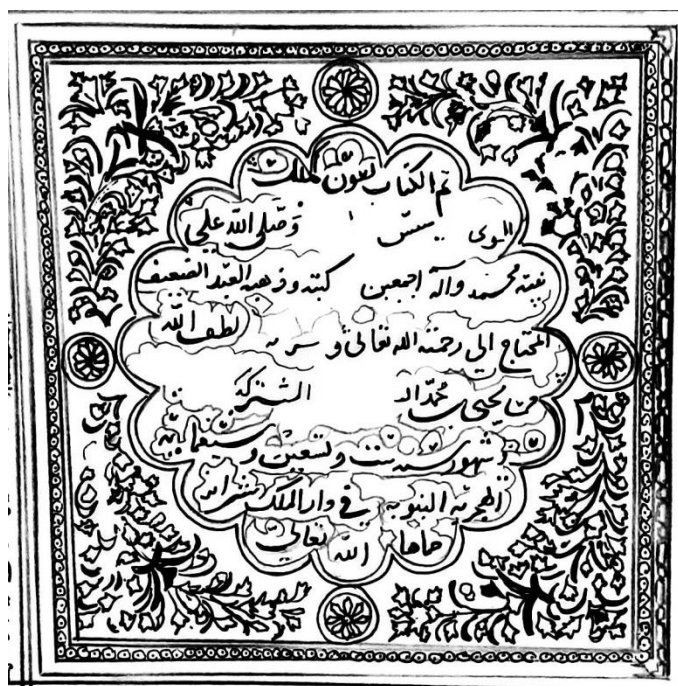 تم الكتاب بعون ملك
وصلى الله على
نبيه محمد وآله اجمعين كتبه وذهبه العبد الضعيف
المحتاج الي رحمة الله تعالى و لطف الله
بن يحيى بن محمد
شهور سنة ست وتسعين وسبعمايه
الهجريه النبويه في دار الملك شيراز
حماها الله تعالى